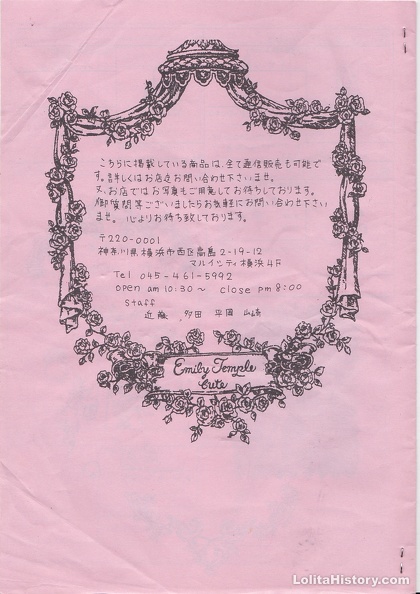 こちらに掲載している商品は、全て通信販売も可能で
す。詳しくはお店迄お問い合わせ下さいませ。
又、お店ではお写真もご用意してお待ちしております。
御質問等ございましたらお気軽にお問い合わせ下さい
ませ。心よりお待ち致しております。
〒220-0001
神奈川県横浜市西区高島2-19-12
マルイシティ横浜4F
Tel 045-461-5992
open am 10:30〜 close pm 8:00
Staff
近藤 多田 平岡 山崎
Emily Temple
cute
LolitaHistory.com